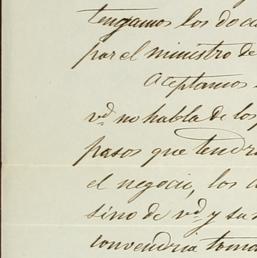 tengamos los docu
por el ministro de
Aceptamos
vd no habla de los
pasos que tendra
el negocio, los a
sino de vd y su
convendria toma